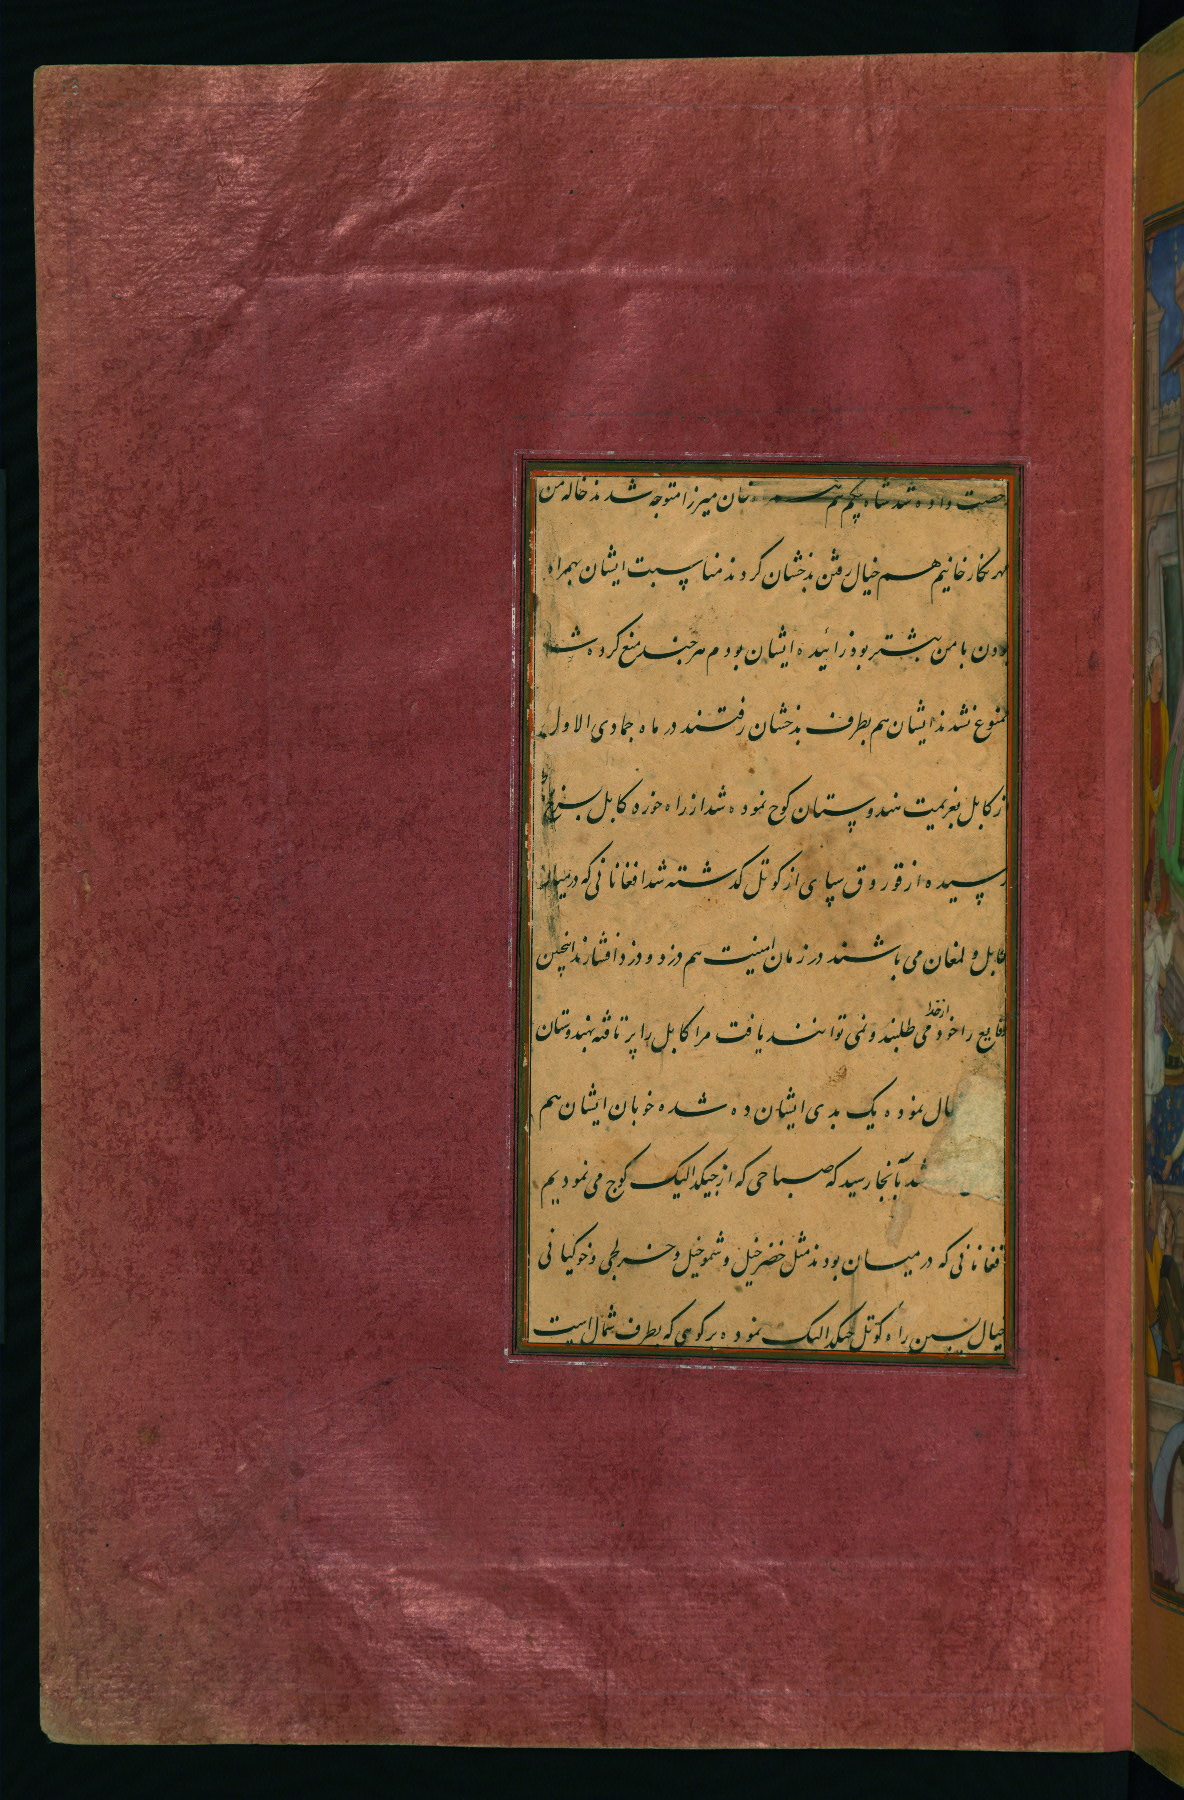 رخصت داده شد شاه بیکم هم همراه خان میرزا متوجه شدند خاله من
مهر نکار خانیم هم خیال رفتن بدخشان کردند مناسبت ایشان بهمراه
بودن با من بیشتر بود زائیده ایشان بودم هر چند منع کرده شد
ممنوع نشدند ایشان هم بطرف بدخشان رفتند در ماه جمادی الاول
از کابل بعزیمت هندوستان کوچ نموده شد از راه خورد کابل بسرخ
رسیده از قوروق سپای از کوتل کذشته شد افغانانی که در میان
کابل و لمغان می باشند در زمان امنیت هم دزد و دزد افشارند اینچنین
وقایع را خود از خدا می طلبند و نمی توانند یافت مرا کابل را پرتافته بهندوستان
نموده یک بدی ایشان ده شده خوبان ایشان هم
شد تا بآنجا رسید که صباحی که از جیکدالیک کوچ می نمودیم
افغانانی که در میان بودند مثل خضر خیل و شمو خیل و خرلجی و خوکیانی
خیال بستن راه کوتل جیکدالیک نموده بر کوهی که بطرف شمال است